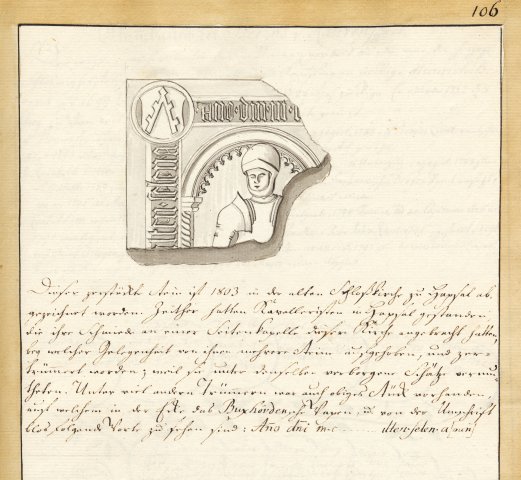 106
ano · dm · m · c
utten · selen · a
Dieser zerstückte Stein ist 1803 in der alten Schloßkirche zu Hapsal ab,
gezeichnet worden. Seither hatten Kavalleristen in Hapsal gestanden
die ihre Schmiede an einer Seitenkapelle dieser Kirche angebracht hatten,
bey welcher Gelegenheit von ihnen mehrere Steine aufgehoben, und zer-
trümert worden; weil sie unter denselben verborgene Schätze vermu-
theten. Unter viel andern Trümern war auch obiges Stück vorhanden,
auf welchem in der Ecke das Buxhövdensche Wapen, u. von der Umschrift
blos folgende Worte zu sehen sind: Ano dni m. c. utten. selen. a[men]